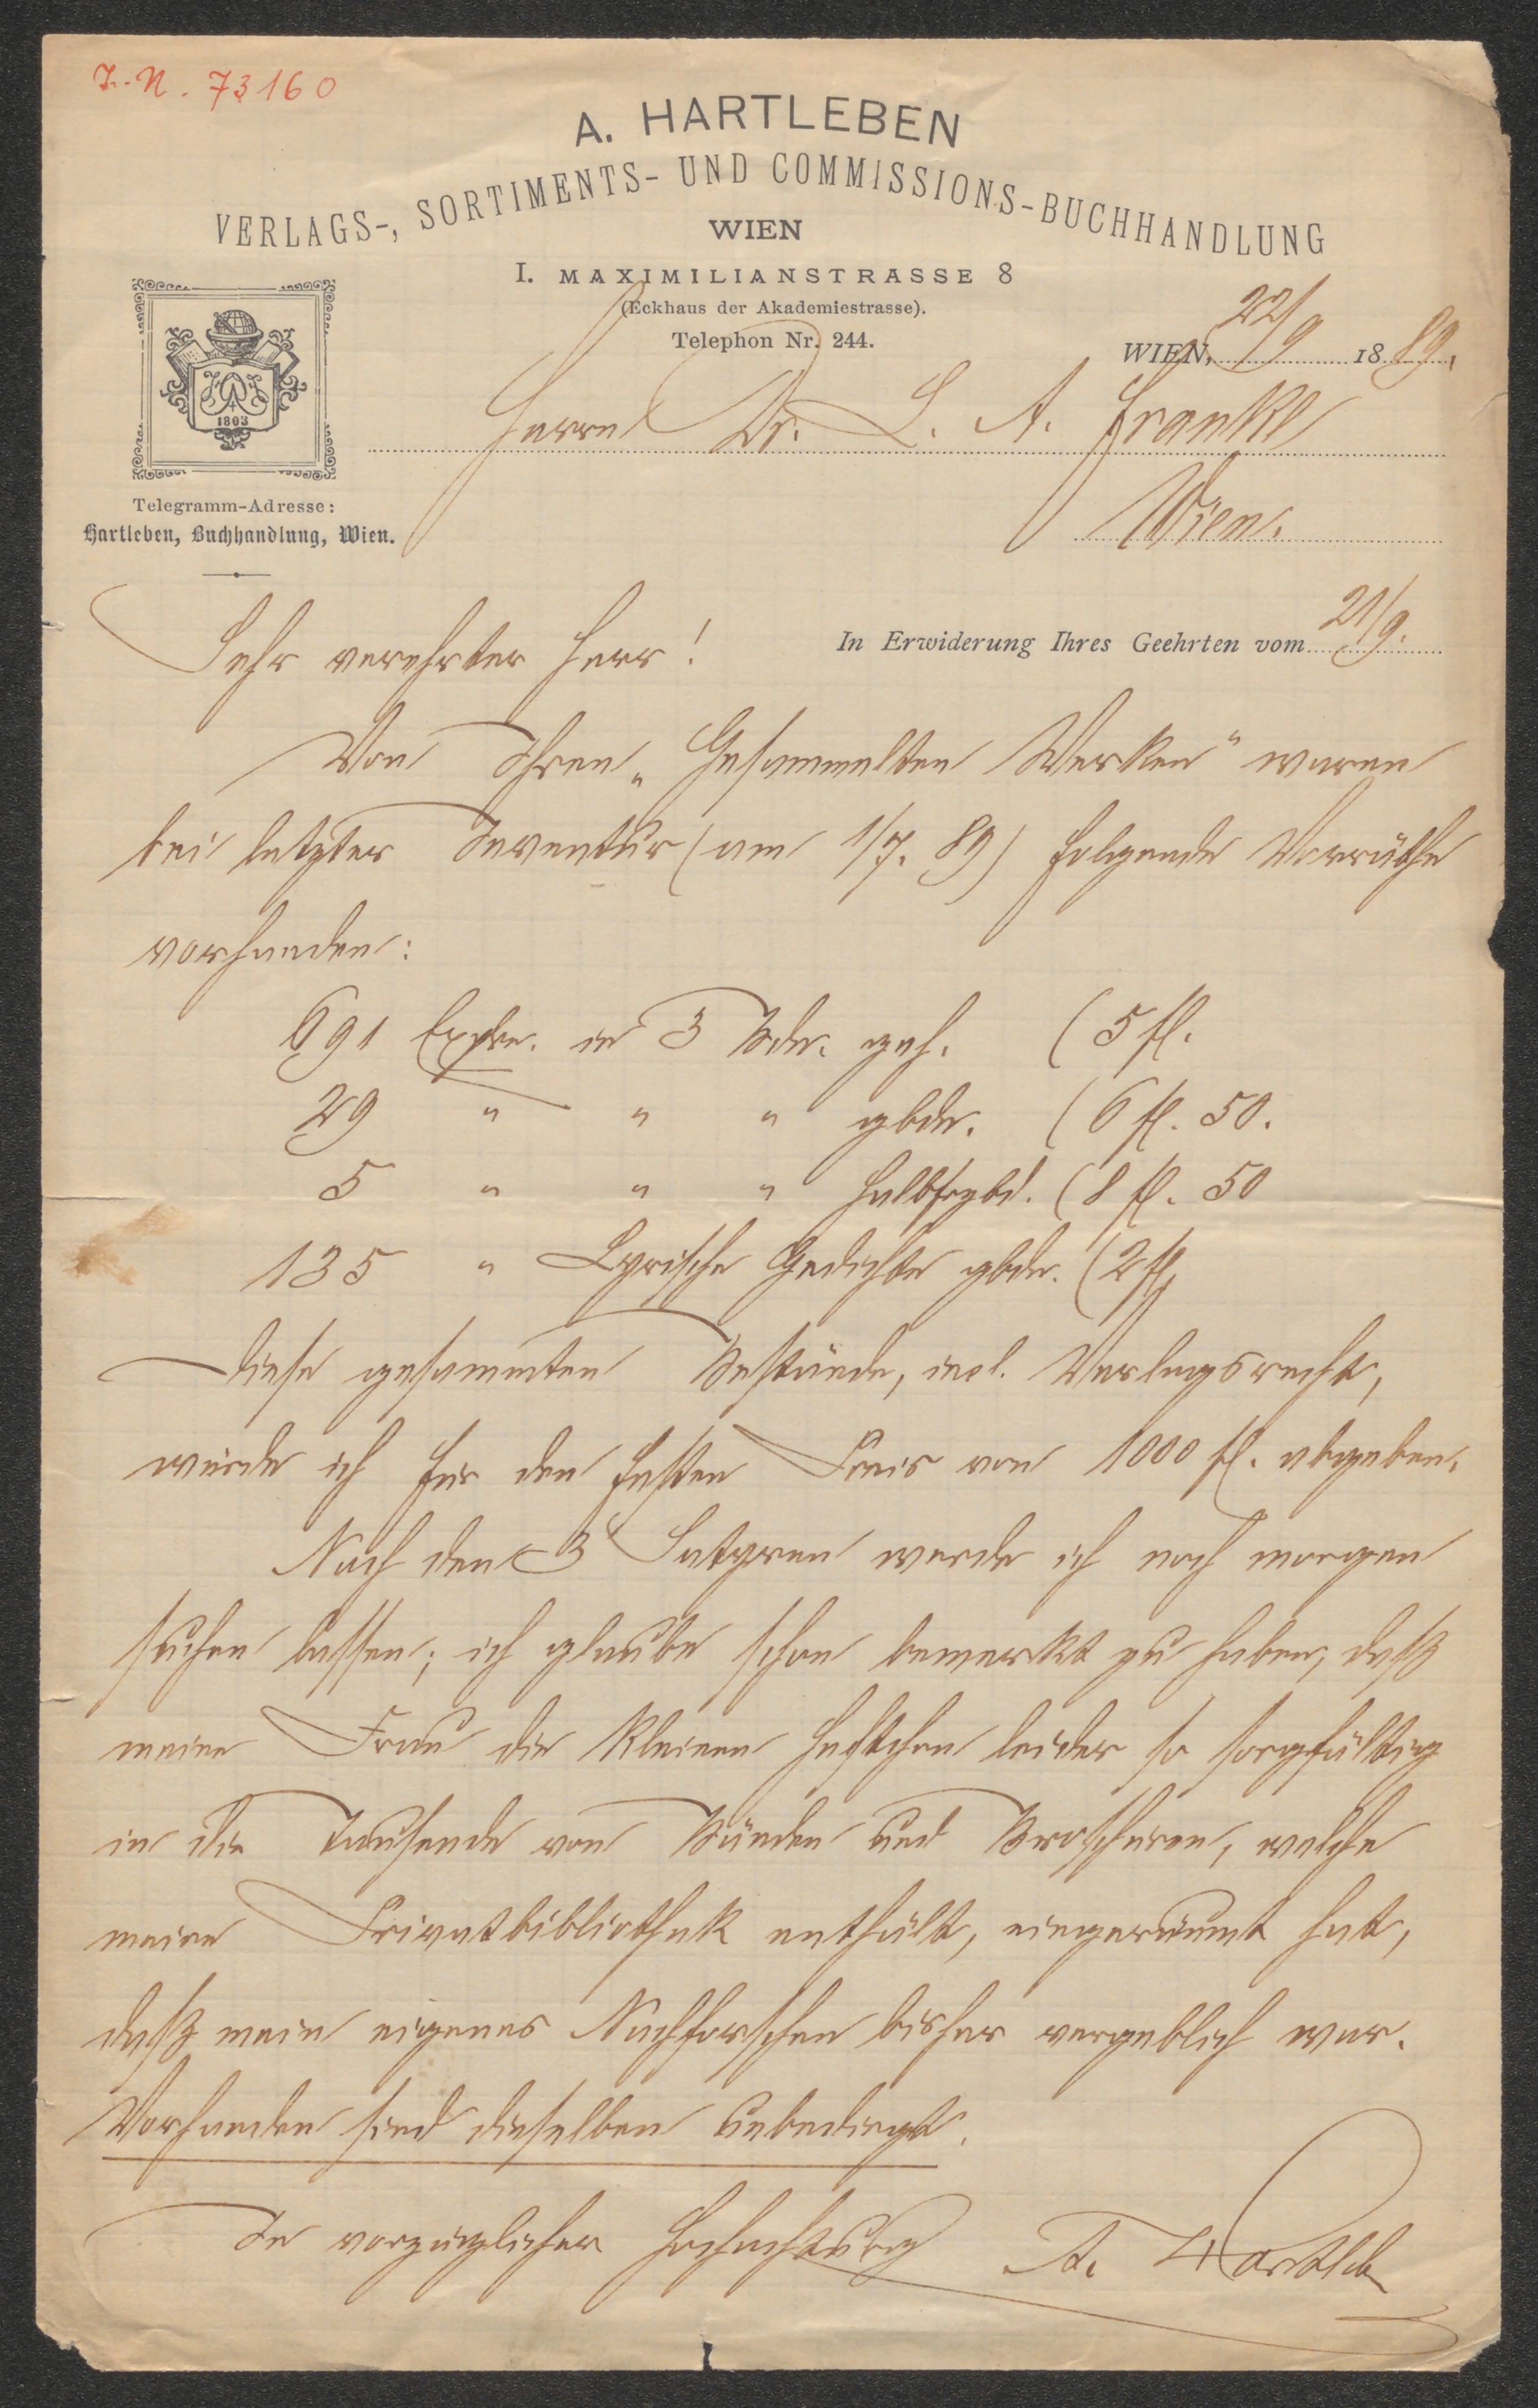 I.-N. 73160
A. HARTLEBEN
VERLAGS-, SORTIMENTS- UND COMMISSIONS-BUCHHANDLUNG
WIEN
I. MAXIMILIANSTRASSE 8
(Eckhaus der Akademiestrasse).
Telephon Nr. 244.
WIEN, 22/9 1889.
1803
Herrn Dr. L. A. Frankl
Wien.
Telegramm-Adresse:
Hartleben, Buchhandlung, Wien.
In Erwiderung Ihres Geehrten vom 21/9.
Sehr verehrter Herr!
Von Ihren „Gesammelten Werken" waren
bei letzter Inventur (am 1/7. 89) folgende Vorräthe
vorhanden:
691 Explre. in 3 Bdn. geh. (5 fl.
29 " " " gbdn. (6 fl. 50.
5 " " " Halbfrzbd. (8 fl. 50
135 " Lyrische Gedichte gbdn. (2 fl.
Diese gesammten Bestände, incl. Verlagsrecht,
würde ich für den festen Preis von 1000 fl. abgeben.
Nach den 3 Satyren werde ich noch morgen
suchen lassen; ich glaube schon bemerkt zu haben, daß
meine Frau die kleinen Heftchen leider so sorgfältig
in die Tausende von Bänden und Broschüren, welche
meine Privatbibliothek enthält, eingeräumt hat,
daß mein eigenes Nachforschen bisher vergeblich war.
Vorhanden sind dieselben unbedingt.
In vorzüglicher Hochachtung A. Hartleb